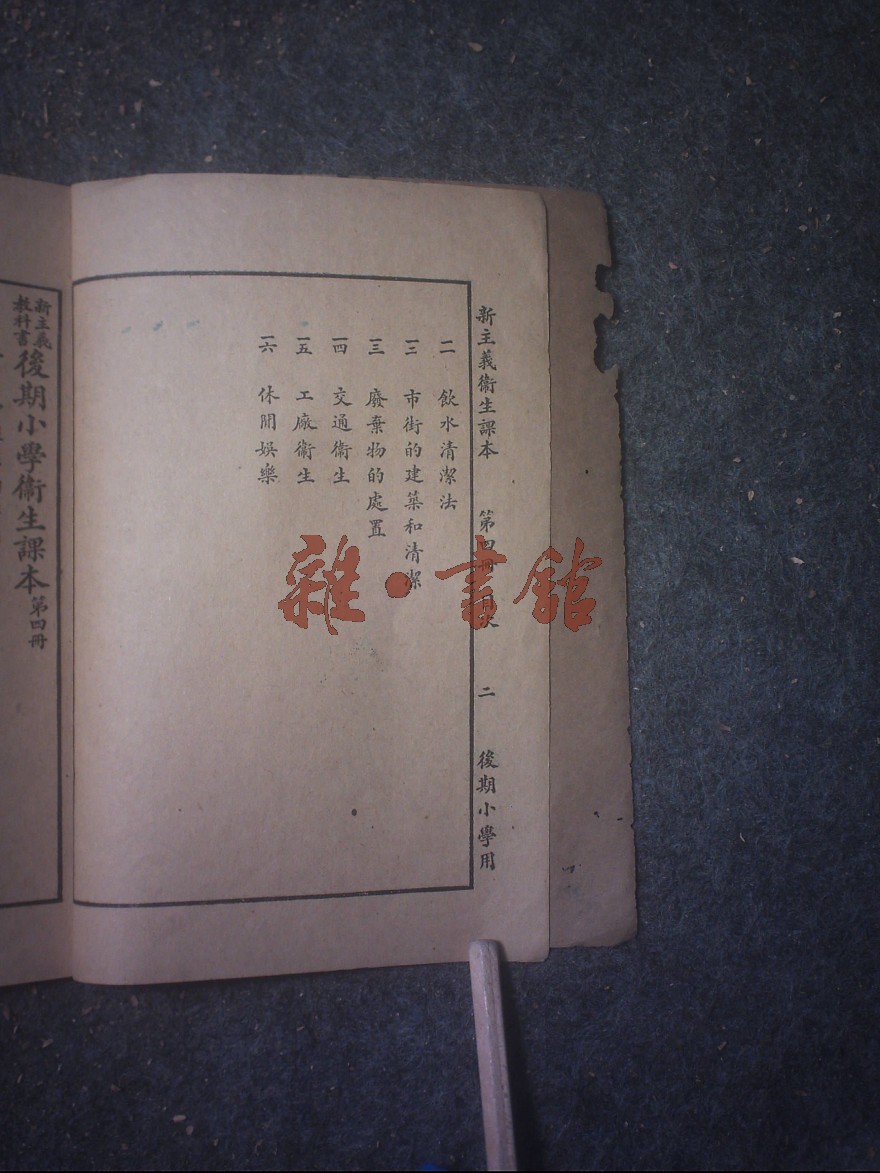 新主義衛生課本 第四冊目次 二 後期小學用
一一 飲水清潔法
一二 市街的建築和清潔
一三 廢棄物的處置
一四 交通衛生
一五 工廠衛生
一六 休閒娛樂
新主義教科書 後期小學衛生課本 第四冊
雜·書館